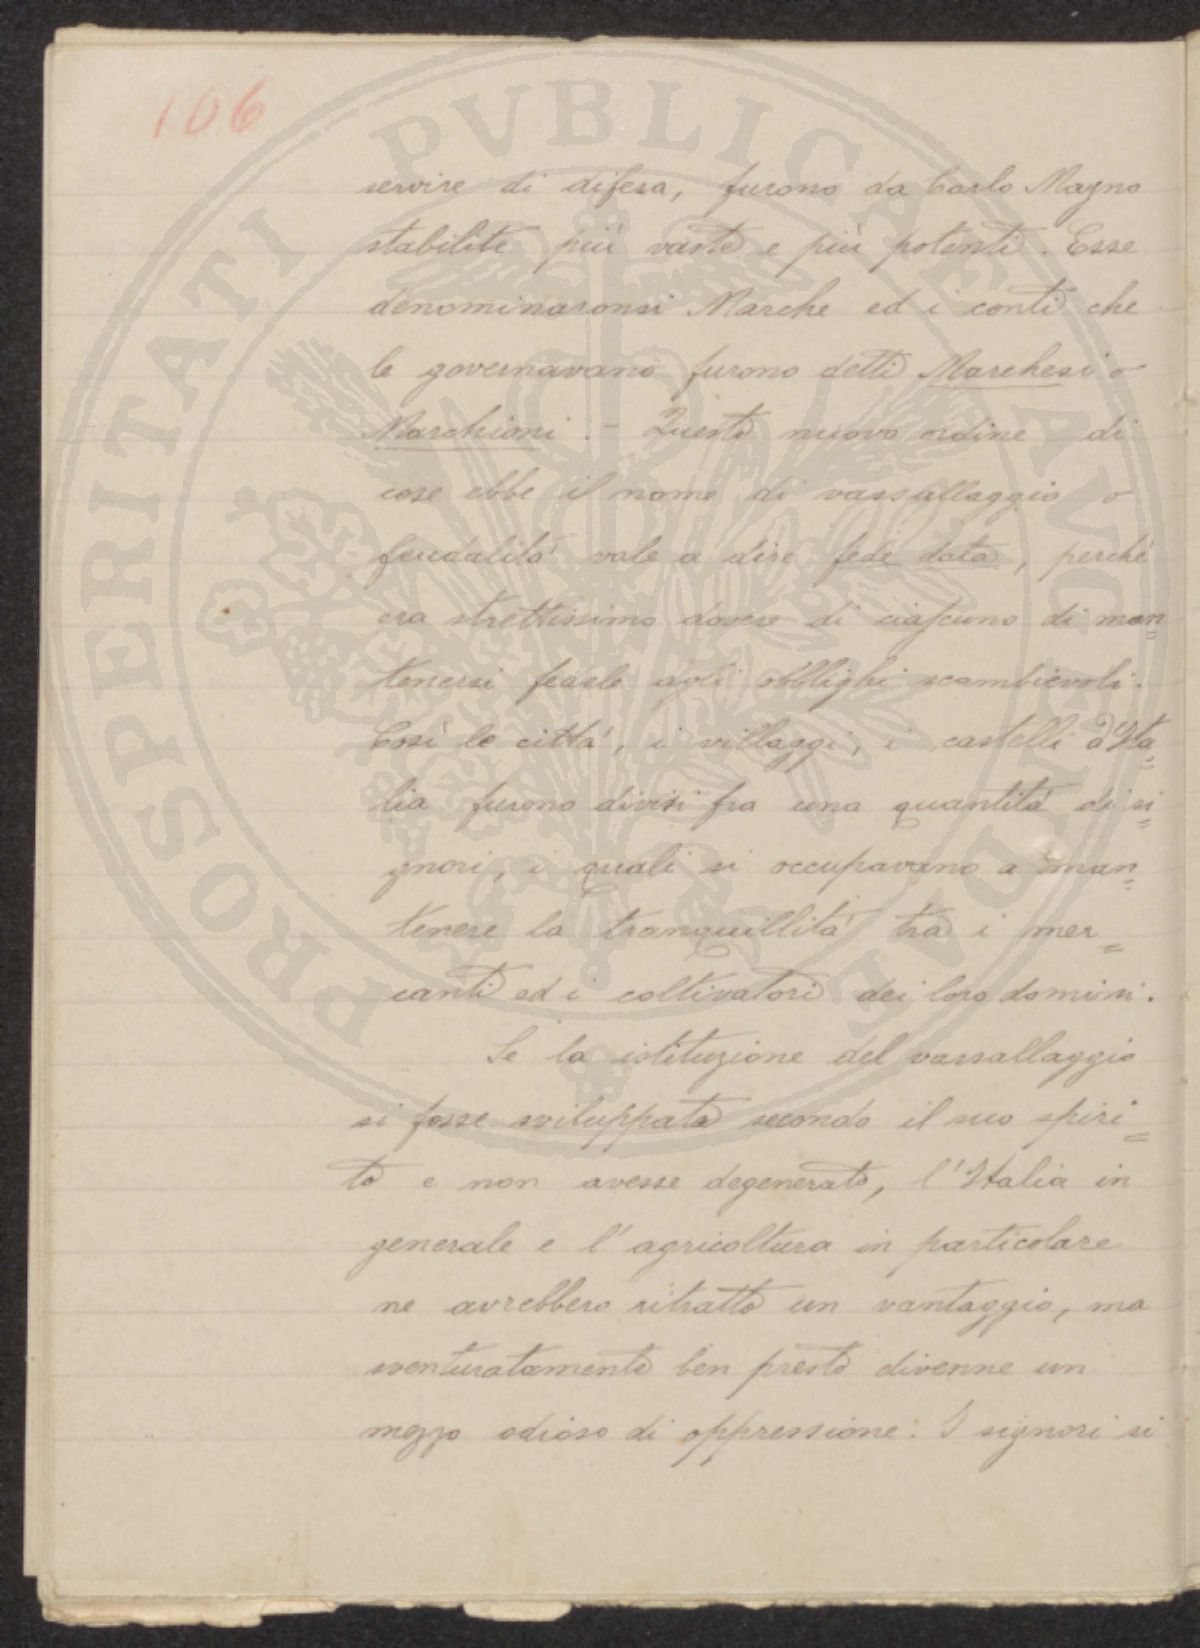 106
servire di difesa, furono da Carlo Magno
stabilite più vaste e più potenti. Esse
denominaronsi Marche ed i conti che
le governavano furono detti Marchesi o
Marchioni. - Questo nuovo ordine di
cose ebbe il nome di vassallaggio o
feudalità vale a dire fede data, perché
era strettissimo dovere di ciascuno di man=
tenersi fedele agli obblighi scambievoli.
Così le città, i villaggi, i castelli d'Ita=
lia furono divisi fra una quantità di si=
gnori, i quali si occupavano a man=
tenere la tranquillità tra i mer=
canti ed i coltivatori dei loro domini.
Se la istituzione del vassallaggio
si fosse sviluppata secondo il suo spiri=
to e non avesse degenerato, l'Italia in
generale e l'agricoltura in particolare
ne avrebbero ritratto un vantaggio, ma
sventuratamente ben presto divenne un
mezzo odioso di oppressione. I signori si
PROSPERITATI PVBLICAE AVGENDAE